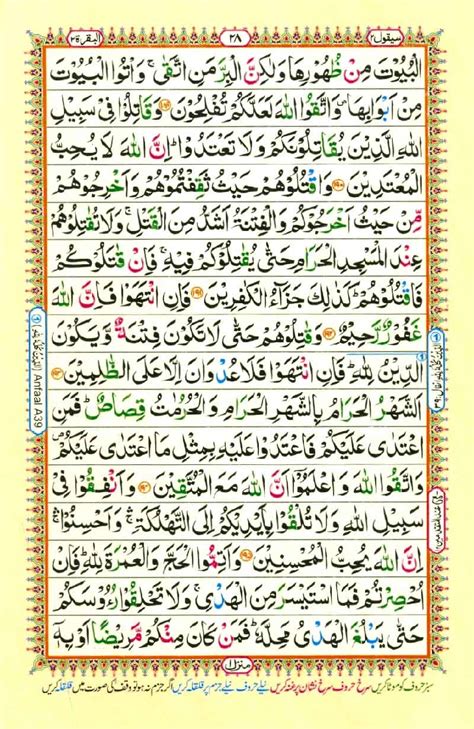 سیقول ٢ ٢٨ البقرة ٢
الْبُيُوْتَ مِنْ ظُهُوْرِهَا وَلٰكِنَّ الْبِرَّ مَنِ اتَّقٰى ۚ وَاْتُوا الْبُيُوْتَ
مِنْ اَبْوَابِهَا ۪ وَاتَّقُوا اللّٰهَ لَعَلَّكُمْ تُفْلِحُوْنَ ﴿۱۸۹﴾ وَقَاتِلُوْا فِيْ سَبِيْلِ
اللّٰهِ الَّذِيْنَ يُقَاتِلُوْنَكُمْ وَلَا تَعْتَدُوْا ؕ اِنَّ اللّٰهَ لَا يُحِبُّ
الْمُعْتَدِيْنَ ﴿۱۹۰﴾ وَاقْتُلُوْهُمْ حَيْثُ ثَقِفْتُمُوْهُمْ وَاَخْرِجُوْهُمْ
مِّنْ حَيْثُ اَخْرَجُوْكُمْ وَالْفِتْنَةُ اَشَدُّ مِنَ الْقَتْلِ ۚ وَلَا تُقٰتِلُوْهُمْ
عِنْدَ الْمَسْجِدِ الْحَرَامِ حَتّٰى يُقٰتِلُوْكُمْ فِيْهِ ۚ فَاِنْ قٰتَلُوْكُمْ
فَاقْتُلُوْهُمْ ؕ كَذٰلِكَ جَزَآءُ الْكٰفِرِيْنَ ﴿۱۹۱﴾ فَاِنِ انْتَهَوْا فَاِنَّ اللّٰهَ
غَفُوْرٌ رَّحِيْمٌ ﴿۱۹۲﴾ وَقٰتِلُوْهُمْ حَتّٰى لَا تَكُوْنَ فِتْنَةٌ وَّيَكُوْنَ
الدِّيْنُ لِلّٰهِ ؕ فَاِنِ انْتَهَوْا فَلَا عُدْوَانَ اِلَّا عَلَى الظّٰلِمِيْنَ ﴿۱۹۳﴾
اَلشَّهْرُ الْحَرَامُ بِالشَّهْرِ الْحَرَامِ وَالْحُرُمٰتُ قِصَاصٌ ؕ فَمَنِ
اعْتَدٰى عَلَيْكُمْ فَاعْتَدُوْا عَلَيْهِ بِمِثْلِ مَا اعْتَدٰى عَلَيْكُمْ ۪
وَاتَّقُوا اللّٰهَ وَاعْلَمُوْۤا اَنَّ اللّٰهَ مَعَ الْمُتَّقِيْنَ ﴿۱۹۴﴾ وَاَنْفِقُوْا فِيْ
سَبِيْلِ اللّٰهِ وَلَا تُلْقُوْا بِاَيْدِيْكُمْ اِلَى التَّهْلُكَةِ ۛۚ وَاَحْسِنُوْا ۛۚ
اِنَّ اللّٰهَ يُحِبُّ الْمُحْسِنِيْنَ ﴿۱۹۵﴾ وَاَتِمُّوا الْحَجَّ وَالْعُمْرَةَ لِلّٰهِ ؕ فَاِنْ
اُحْصِرْتُمْ فَمَا اسْتَيْسَرَ مِنَ الْهَدْيِ ۚ وَلَا تَحْلِقُوْا رُءُوْسَكُمْ
حَتّٰى يَبْلُغَ الْهَدْيُ مَحِلَّهٗ ؕ فَمَنْ كَانَ مِنْكُمْ مَّرِيْضًا اَوْ بِهٖۤ
منزل ١
سبز حروف کو موٹا کریں سرخ حروف سرخ نشان پر غنہ کریں نیلے حروف نیلے جزم پر قلقلہ کریں اگر جزم نہ ہو تو وقف کی صورت میں قلقلہ کریں
Anfaal A39